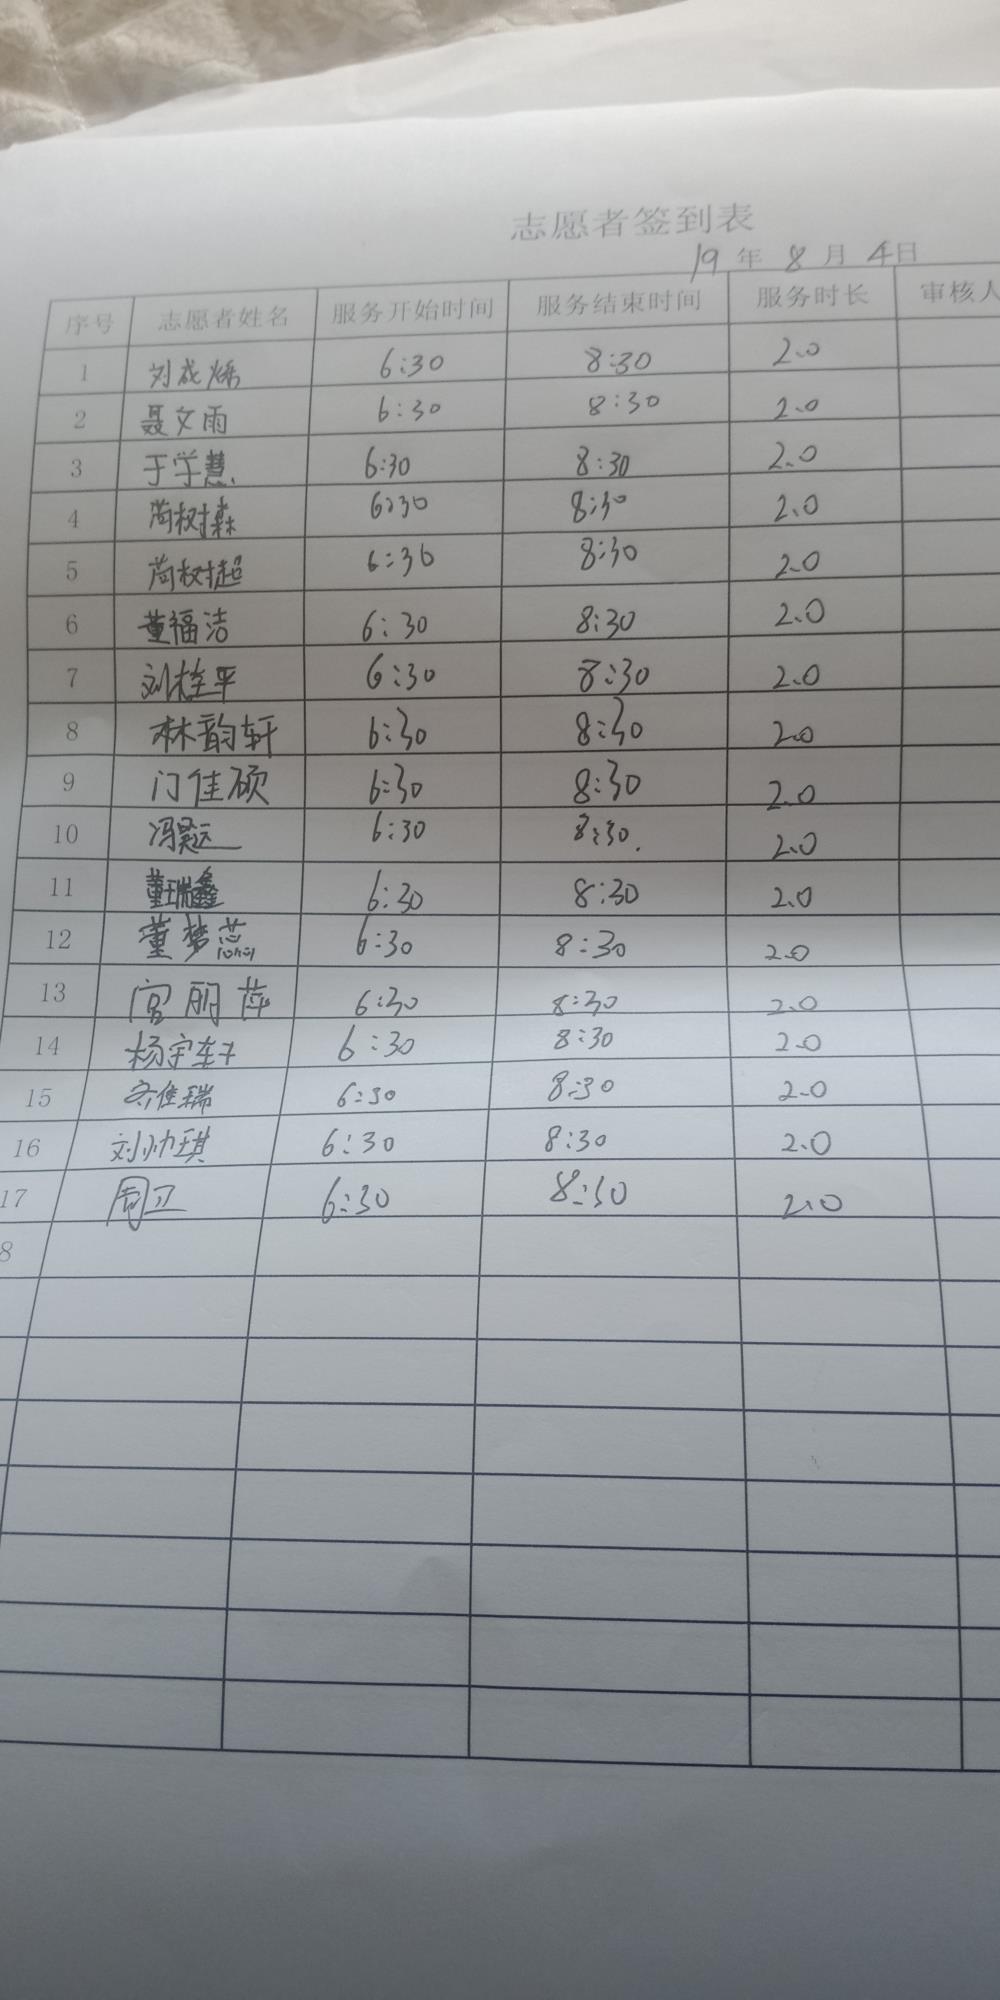 志愿者签到表
19年8月4日
序号 志愿者姓名 服务开始时间 服务结束时间 服务时长 审核人
1 刘成烯 6:30 8:30 2.0
2 聂文雨 6:30 8:30 2.0
3 于学慧 6:30 8:30 2.0
4 荷树森 6:30 8:30 2.0
5 树超 6:30 8:30 2.0
6 董福洁 6:30 8:30 2.0
7 刘桂平 6:30 8:30 2.0
8 林韵轩 6:30 8:30 2.0
9 门佳硕 6:30 8:30 2.0
10 冯昊远 6:30 8:30 2.0
11 董瑞鑫 6:30 8:30 2.0
12 董梦蕊 6:30 8:30 2.0
13 宫丽萍 6:30 8:30 2.0
14 杨宇轩 6:30 8:30 2.0
15 佳瑞 6:30 8:30 2.0
16 刘帅琪 6:30 8:30 2.0
17 周卫 6:30 8:30 2.0
8